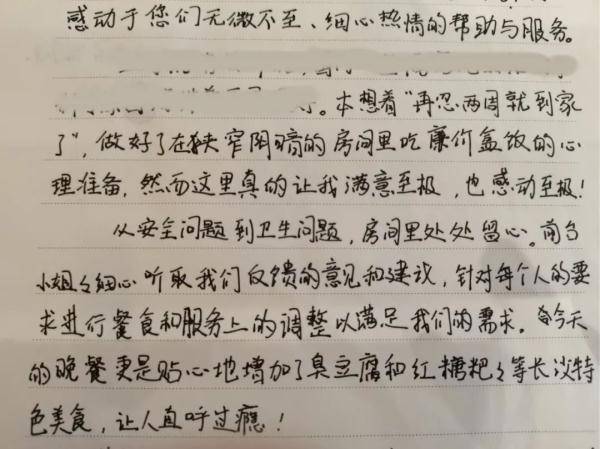 感动于您们无微不至、细心热情的帮助与服务。
本想着“再忍两周就到家
了”，做好了在狭窄阴暗的房间里吃廉价盒饭的心
理准备，然而这里真的让我满意至极，也感动至极！
从安全问题到卫生问题，房间里处处留心。前台
小姐々细心听取我们反馈的意见和建议，针对每个人的要
求进行餐食和服务上的调整以满足我们的需求。今天
的晚餐更是贴心地增加了臭豆腐和红糖粑々等长沙特
色美食，让人直呼过瘾！